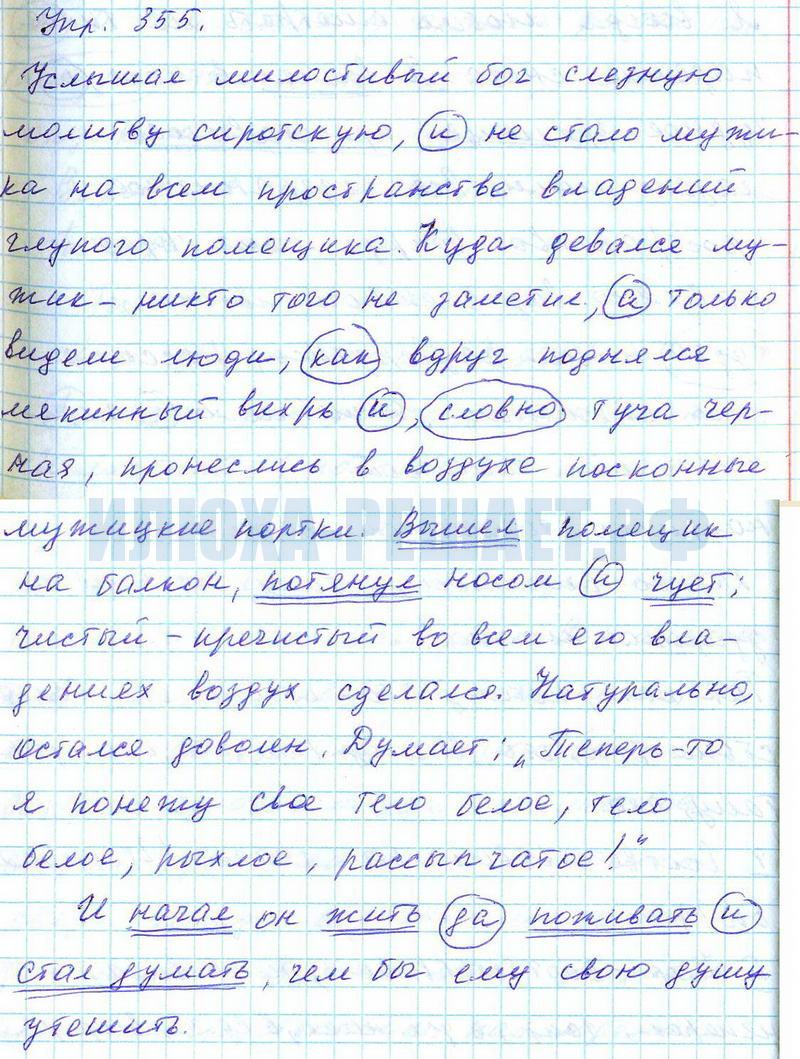 Упр. 355.
Услышал милостивый бог слезную
молитву сиротскую, и не стало мужи-
ка на всем пространстве владений
глупого помещика. Куда девался му-
жик - никто того не заметил, а только
видели люди, как вдруг поднялся
мякинный вихрь и, словно туча чер-
ная, пронеслись в воздухе посконные
мужицкие портки. Вышел помещик
ИЛЮХА РЕШАЕТ.РФ
на балкон, потянул носом и чует;
чистый - пречистый во всем его вла-
дениях воздух сделался. Натурально,
остался доволен. Думает: „Теперь-то
я понежу свое тело белое, тело
белое, рыхлое, рассыпчатое!"
И начал он жить да поживать и
стал думать, чем бы ему свою душу
утешить.